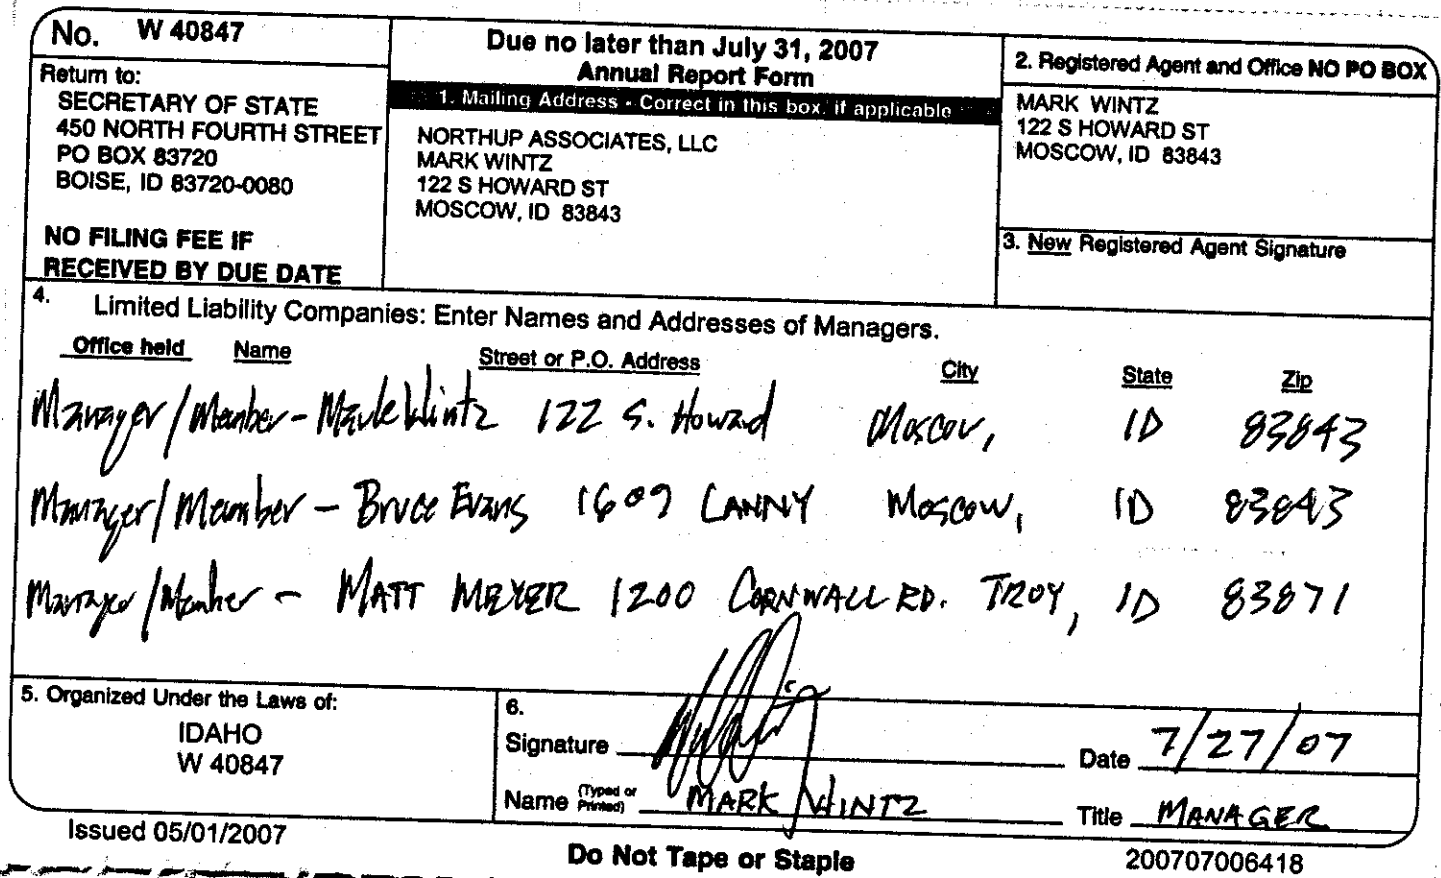 No. W 40847
Return to:
SECRETARY OF STATE
450 NORTH FOURTH STREET
PO BOX 83720
BOISE, ID 83720-0080
NO FILING FEE IF
RECEIVED BY DUE DATE
Due no later than July 31, 2007
Annual Report Form
1. Mailing Address - Correct in this box, if applicable
NORTHUP ASSOCIATES, LLC
MARK WINTZ
122 S HOWARD ST
MOSCOW, ID 83843
2. Registered Agent and Office NO PO BOX
MARK WINTZ
122 S HOWARD ST
MOSCOW, ID 83843
3. New Registered Agent Signature
4. Limited Liability Companies: Enter Names and Addresses of Managers.
Office held Name Street or P.O. Address City State Zip
Manager/Member - Mark Wintz 122 S. Howard Moscow, ID 83843
Manager/Member - Bruce Evans 1609 LANNY Moscow, ID 83843
Manager/Member - MATT MEYER 1200 CORNWALL RD. TROY, ID 83871
5. Organized Under the Laws of:
IDAHO
W 40847
6.
Signature Date 7/27/07
Name (Typed or Printed) MARK WINTZ Title MANAGER
Issued 05/01/2007
Do Not Tape or Staple
200707006418